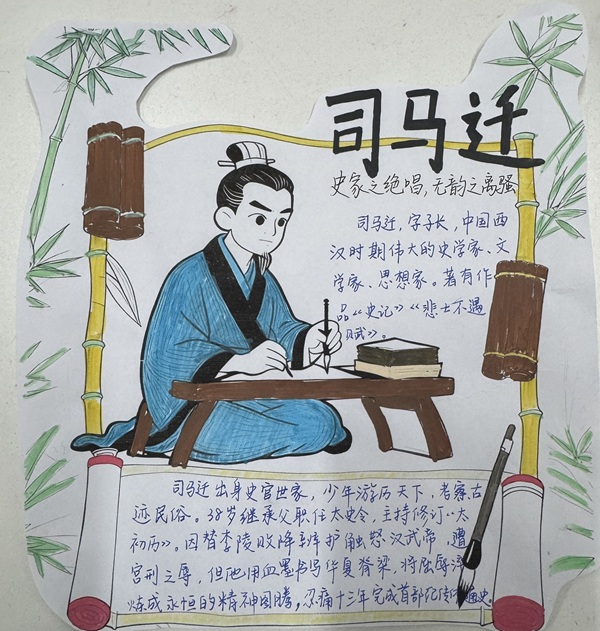 司马迁
史家之绝唱,无韵之离骚
司马迁,字子长,中国西
汉时期伟大的史学家、文
学家、思想家。著有作
品《史记》《悲士不遇
赋》。
司马迁出身史官世家,少年游历天下,考察古
迹民俗。38岁继承父职任太史令,主持修订《太
初历》。因替李陵败降辩护触怒汉武帝,遭
宫刑之辱,但他用血墨书写华夏脊梁,将屈辱
炼成永恒的精神图腾,忍痛十三年完成首部纪传 通史